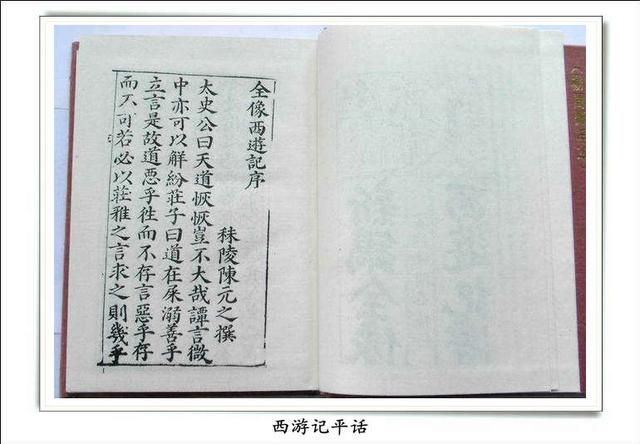 全像西遊記序
秣陵陳元之撰
太史公曰天道恢恢豈不大哉譚言微
中亦可以解紛莊子曰道在屎溺善乎
立言是故道惡乎徃而不存言惡乎存
而不可若必以莊雅之言求之則幾乎
西游记平话